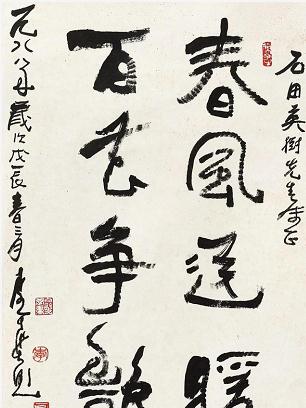 石田英樹先生雅正
春風送暖
百花争艷
一九八八年歲次戊辰春三月